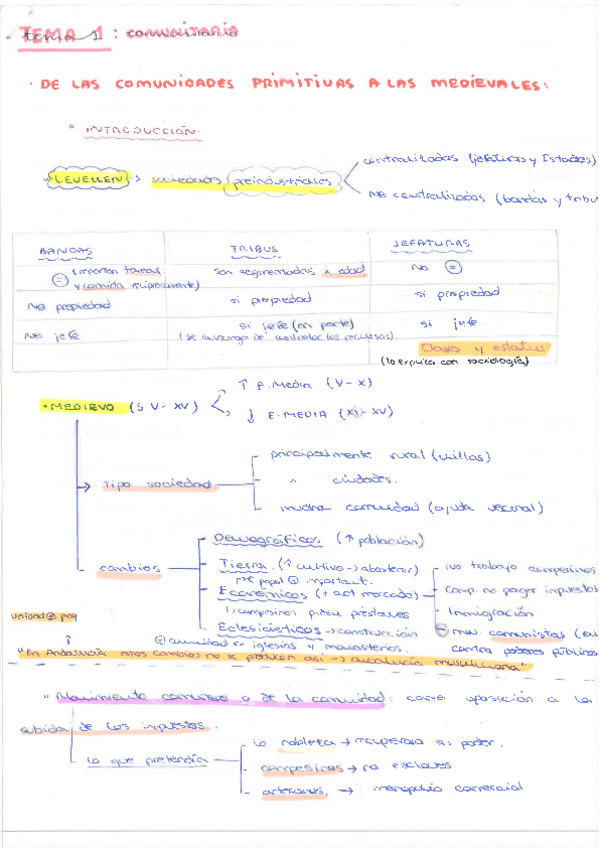 TEMA 1: comunitaria
· DE LAS COMUNIDADES PRIMITIVAS A LAS MEDIEVALES:
° INTRODUCCIÓN.
LEWELLEN > sociedades preindustriales
centralizadas (jefaturas y Estados)
No centralizadas (bandas y tribu
BANDAS TRIBUS JEFATURAS
= (reparten tareas y comida recíprocamente) son segmentadas x edad No =
No propiedad si propiedad si propiedad
No jefe si jefe (en parte) si jefe
(se encarga de controlar los recursos)
Clases y estatus
(lo explica con sociología)
· MEDIEVO (S V - XV)
↑ E. Media (V - X)
↓ E. MEDIA (XI - XV)
→ Tipo sociedad
principalmente rural (villas)
" ciudades.
mucha comunidad (ayuda vecinal)
cambios
Demográficos (↑ población)
Tierra (↑ cultivo → abastecer)
papel important.
Económicos (↑ act mercado)
↳ campesinos piden préstamos
Eclesiásticos → construcción
comunidad en iglesias y monasterios.
No trabajo campesinos
Camp. no pagar impuestos
Inmigración
mov. comunistas (en
contra poderes públicos
"En Andalucía estos cambios no se producen así → Andalucía musulmana"
"Movimiento comunero o de la comunidad: como oposición a la
subida de los impuestos.
Lo que pretendía
La nobleza → recuperar su poder.
campesinos → no esclavos
artesanos. → monopolio comercial